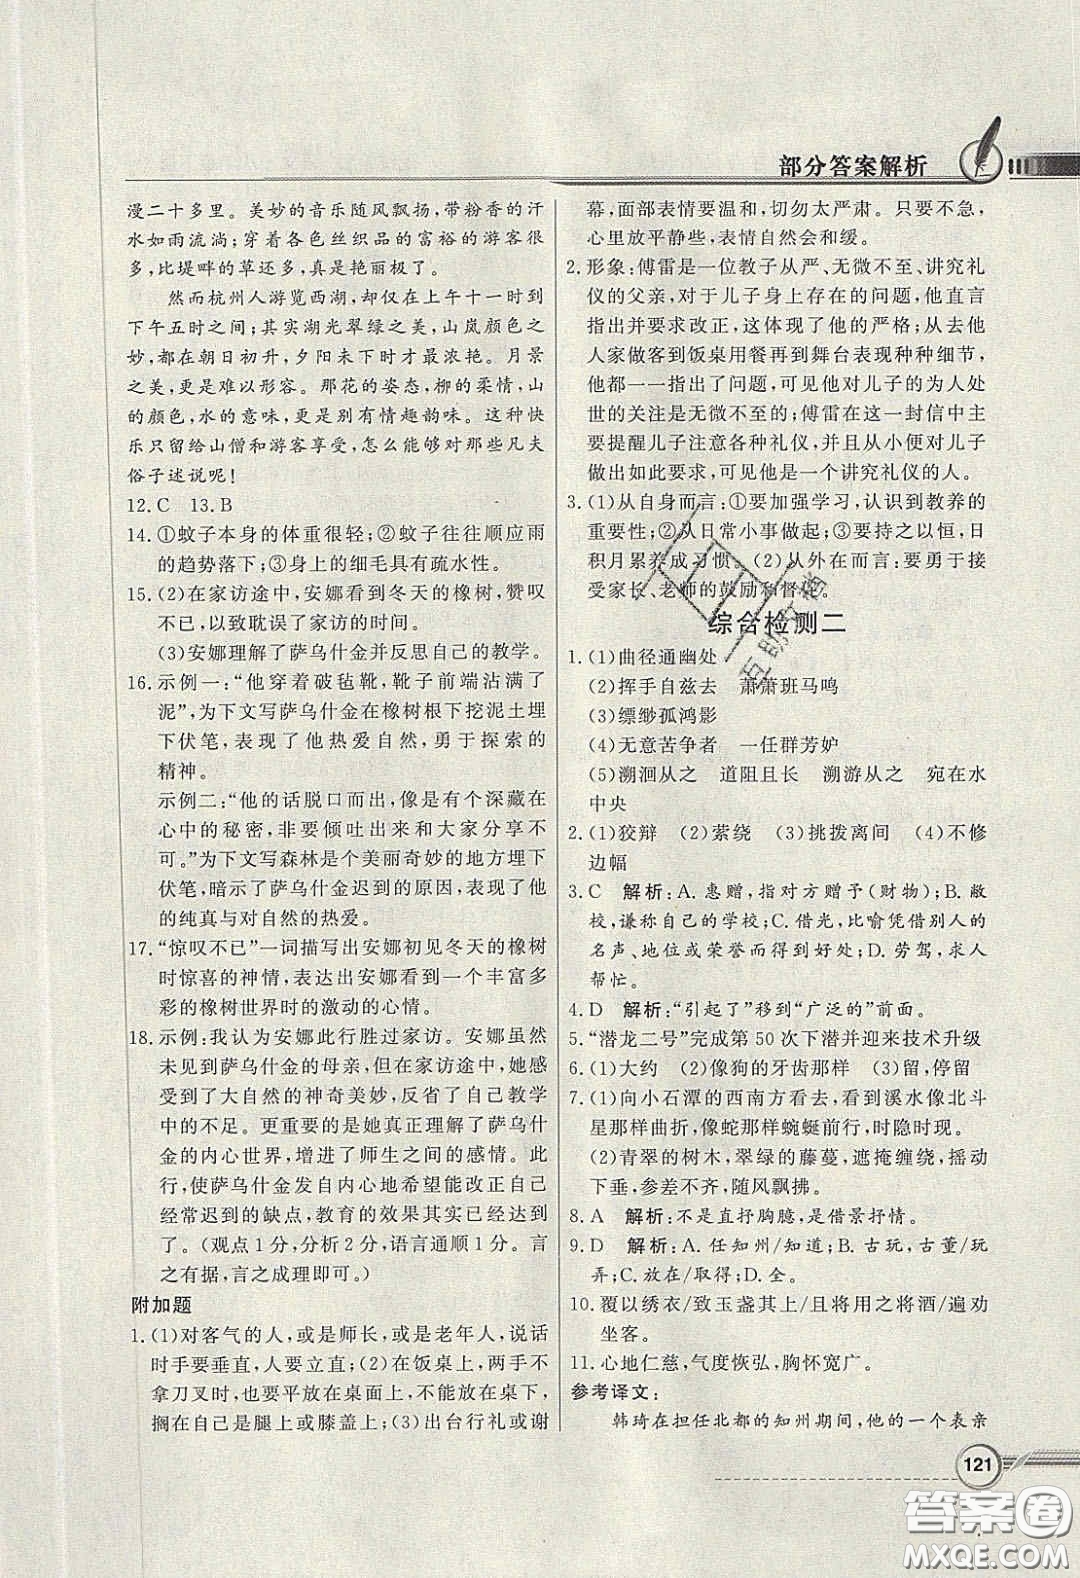 部分答案解析
漫二十多里。美妙的音乐随风飘扬，带粉香的汗
水如雨流淌；穿着各色丝织品的富裕的游客很
多，比堤畔的草还多，真是艳丽极了。
然而杭州人游览西湖，却仅在上午十一时到
下午五时之间；其实湖光翠绿之美，山岚颜色之
妙，都在朝日初升，夕阳未下时才最浓艳。月景
之美，更是难以形容。那花的姿态，柳的柔情，山
的颜色，水的意味，更是别有情趣韵味。这种快
乐只留给山僧和游客享受，怎么能够对那些凡夫
俗子述说呢！
12. C 13. B
14. ①蚊子本身的体重很轻；②蚊子往往顺应雨
的趋势落下；③身上的细毛具有疏水性。
15. (2)在家访途中，安娜看到冬天的橡树，赞叹
不已，以致耽误了家访的时间。
(3)安娜理解了萨乌什金并反思自己的教学。
16. 示例一：“他穿着破毡靴，靴子前端沾满了
泥”，为下文写萨乌什金在橡树根下挖泥土埋
下伏笔，表现了他热爱自然，勇于探索的
精神。
示例二：“他的话脱口而出，像是有个深藏在
心中的秘密，非要倾吐出来和大家分享不
可。”为下文写森林是个美丽奇妙的地方埋下
伏笔，暗示了萨乌什金迟到的原因，表现了他
的纯真与对自然的热爱。
17. “惊叹不已”一词描写出安娜初见冬天的橡树
时惊喜的神情，表达出安娜看到一个丰富多
彩的橡树世界时的激动的心情。
18. 示例：我认为安娜此行胜过家访。安娜虽然
未见到萨乌什金的母亲，但在家访途中，她感
受到了大自然的神奇美妙，反省了自己教学
中的不足。更重要的是她真正理解了萨乌什
金的内心世界，增进了师生之间的感情。因
此，使萨乌什金发自内心地希望能改正自己
经常迟到的缺点，教育的效果其实已经达到
了。（观点1分，分析2分，语言通顺1分。言
之有据，言之成理即可。）
附加题
1. (1)对客气的人，或是师长，或是老年人，说话
时手要垂直，人要立直；(2)在饭桌上，两手不
拿刀叉时，也要平放在桌面上，不能放在桌下，
搁在自己的腿上或膝盖上；(3)出台行礼或谢
幕，面部表情要温和，切勿太严肃。只要不急，
心里放平静些，表情自然会和缓。
2. 形象：傅雷是一位教子从严、无微不至、讲究礼
仪的父亲，对于儿子身上存在的问题，他直言
指出并要求改正，这体现了他的严格；从他去
人家做客到饭桌用餐再到舞台表现种种细节，
他都一一指出了问题，可见他对儿子的为人处
世的关注是无微不至的；傅雷在这一封信中主
要提醒儿子注意各种礼仪，并且从小便对儿子
做出如此要求，可见他是一个讲究礼仪的人。
3. (1)从自身而言：①要加强学习，认识到教养的
重要性；②从日常小事做起；③要持之以恒，日
积月累养成习惯。(2)从外在而言：要勇于接
受家长、老师的鼓励和督促。
综合检测二
1. (1)曲径通幽处
(2)挥手自兹去 萧萧班马鸣
(3)缥缈孤鸿影
(4)无意苦争春 一任群芳妒
(5)溯洄从之 道阻且长 溯游从之 宛在水
中央
2. (1)狡辩 (2)萦绕 (3)挑拨离间 (4)不修
边幅
3. C 解析：A. 惠赠，指对方赠予（财物）；B. 敝
校，谦称自己的学校；C. 借光，比喻凭借别人的
名声、地位或荣誉而得到好处；D. 劳驾，求人
帮忙。
4. D 解析：“引起了”移到“广泛的”前面。
5. “潜龙二号”完成第50次下潜并迎来技术升级
6. (1)大约 (2)像狗的牙齿那样 (3)留，停留
7. (1)向小石潭的西南方看去，看到溪水像北斗
星那样曲折，像蛇那样蜿蜒前行，时隐时现。
(2)青翠的树木，翠绿的藤蔓，遮掩缠绕，摇动
下垂，参差不齐，随风飘拂。
8. A 解析：不是直抒胸臆，是借景抒情。
9. D 解析：A. 任知州/知道；B. 古玩，古董/玩
弄；C. 放在/取得；D. 全。
10. 覆以绣衣/致玉盏其上/且将用之将酒/遍劝
坐客。
11. 心地仁慈，气度恢弘，胸怀宽广。
参考译文：
韩琦在担任北都的知州期间，他的一个表亲
121
答案圈
MXQE.COM